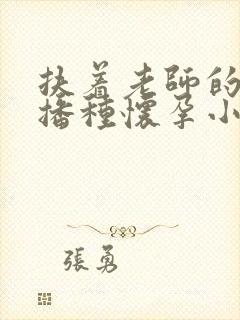 扶着老師的
播種懷孕小
張勇